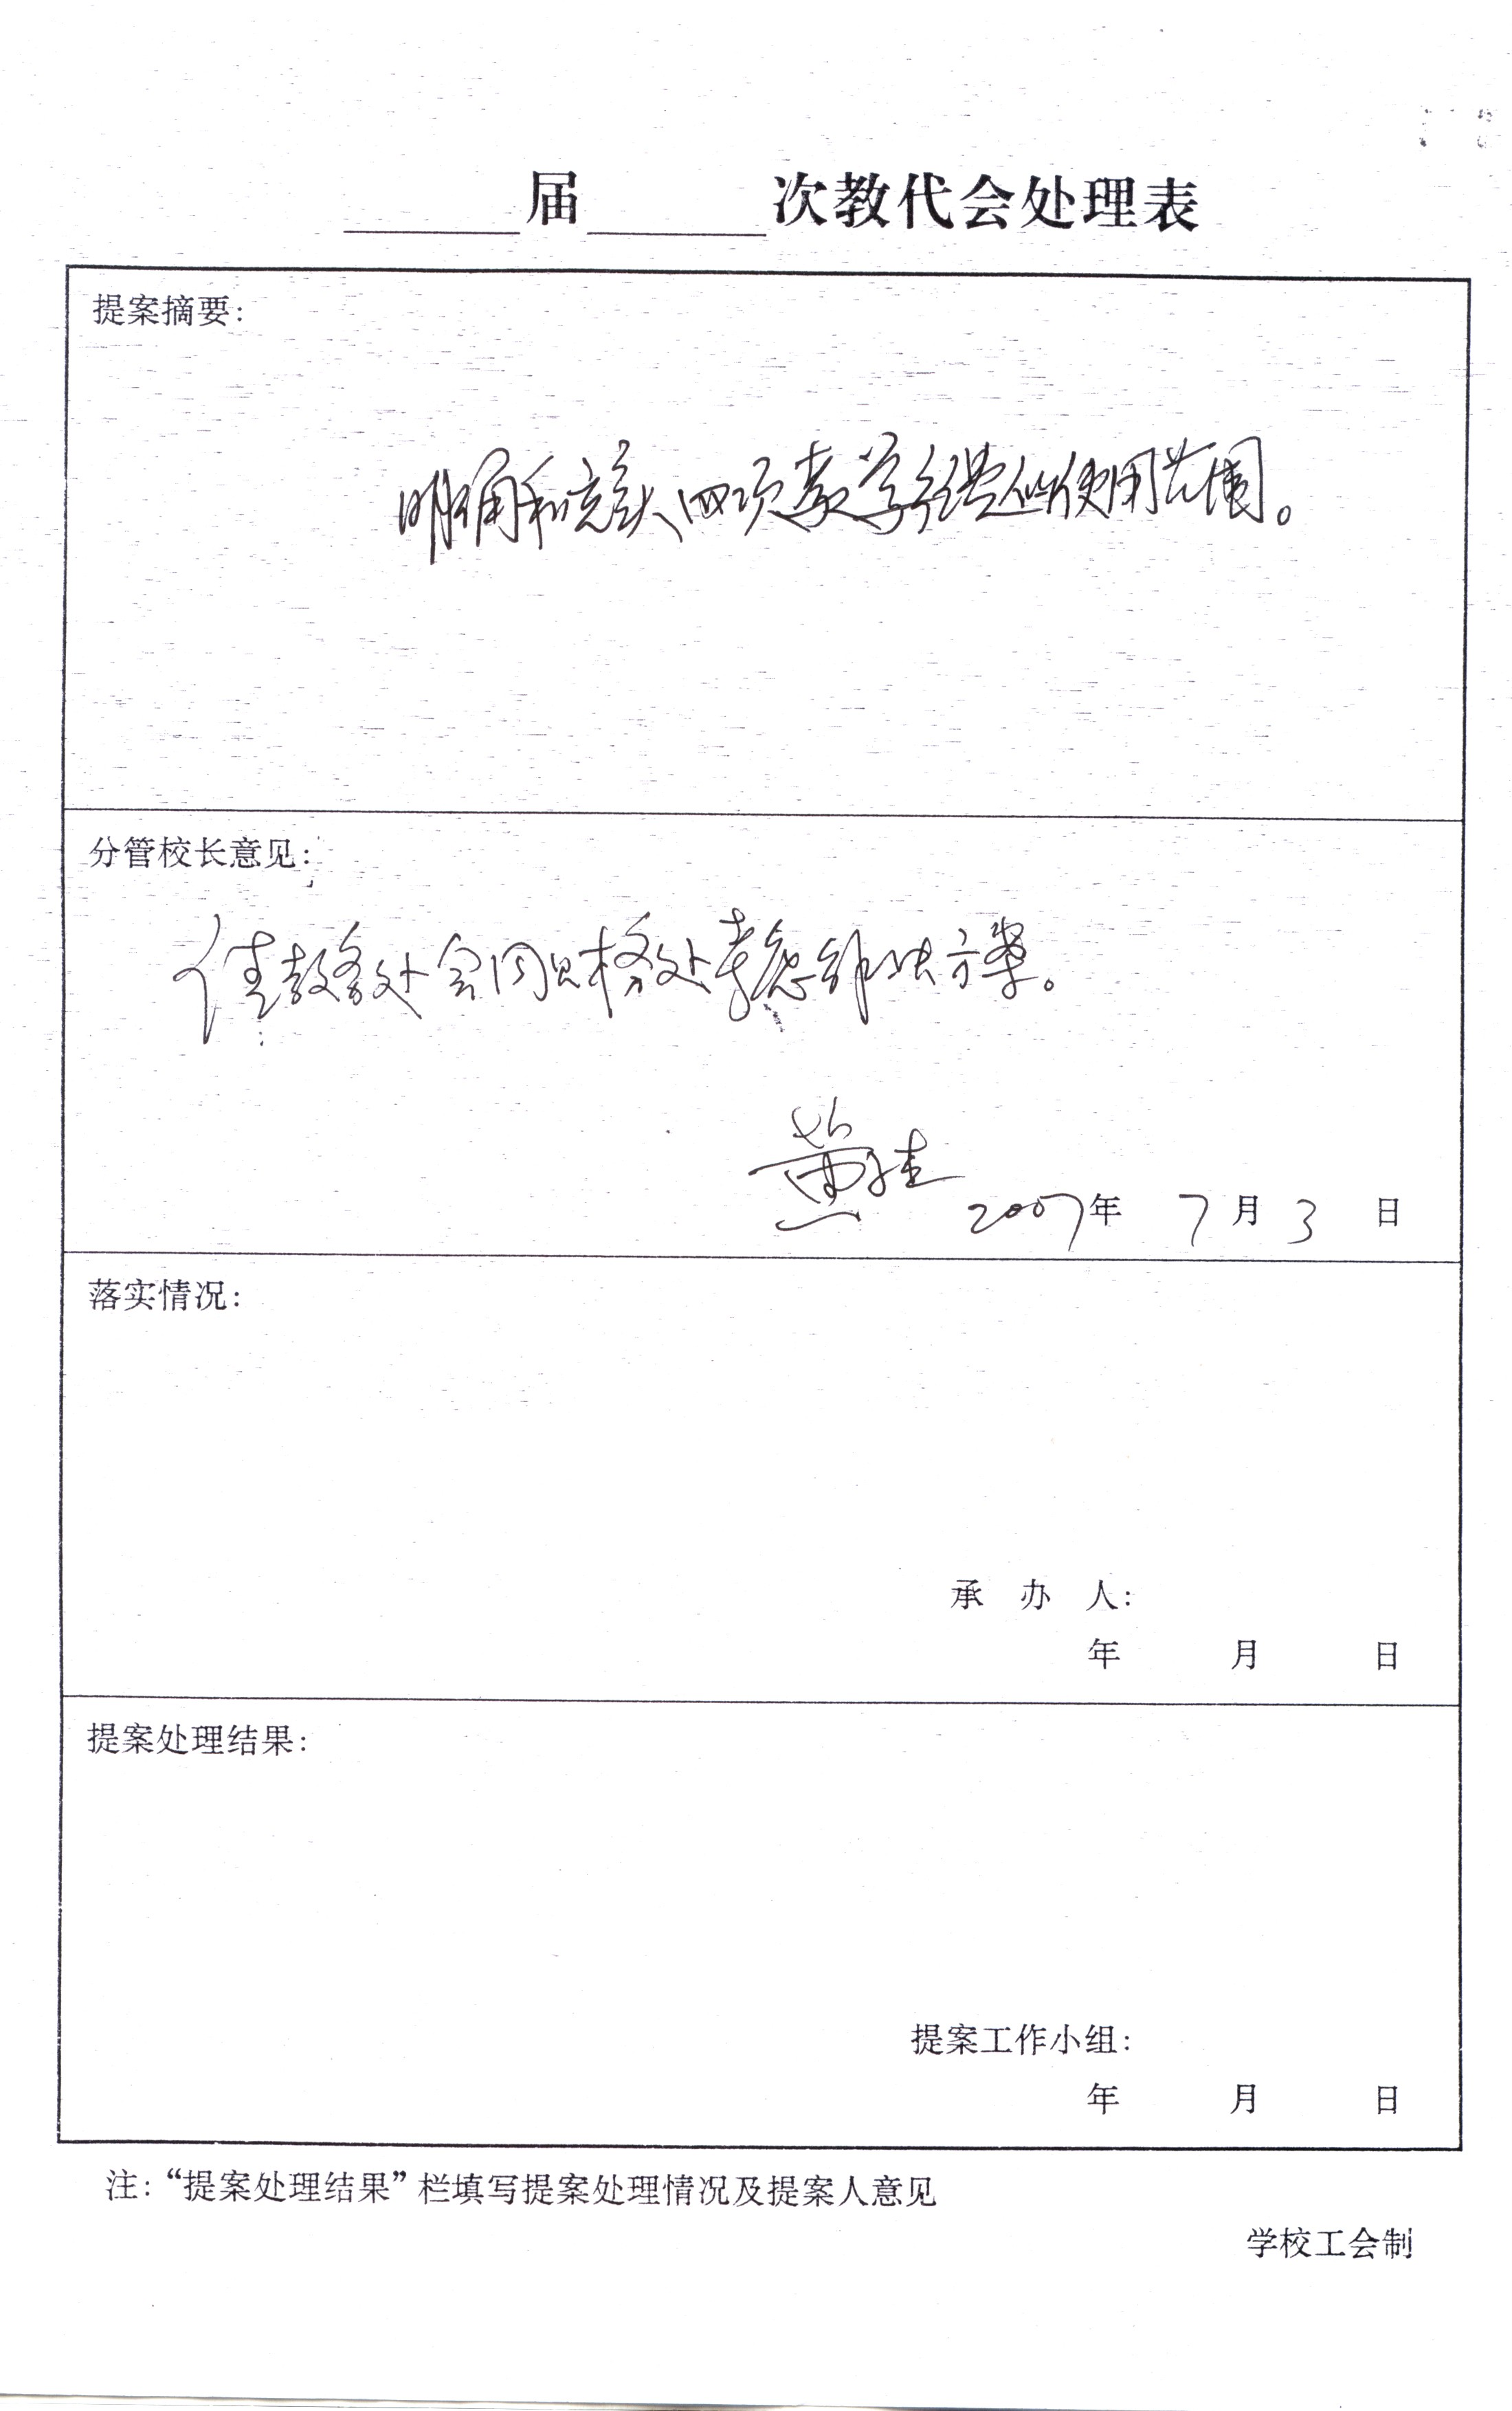 届 次教代会处理表
提案摘要:
明确和完善四项教学经费的使用范围。
分管校长意见:
请教务处会同财务处考虑解决方案。
2007年 7月3日
落实情况:
承办人:
年 月 日
提案处理结果:
提案工作小组:
年 月 日
注:“提案处理结果”栏填写提案处理情况及提案人意见
学校工会制